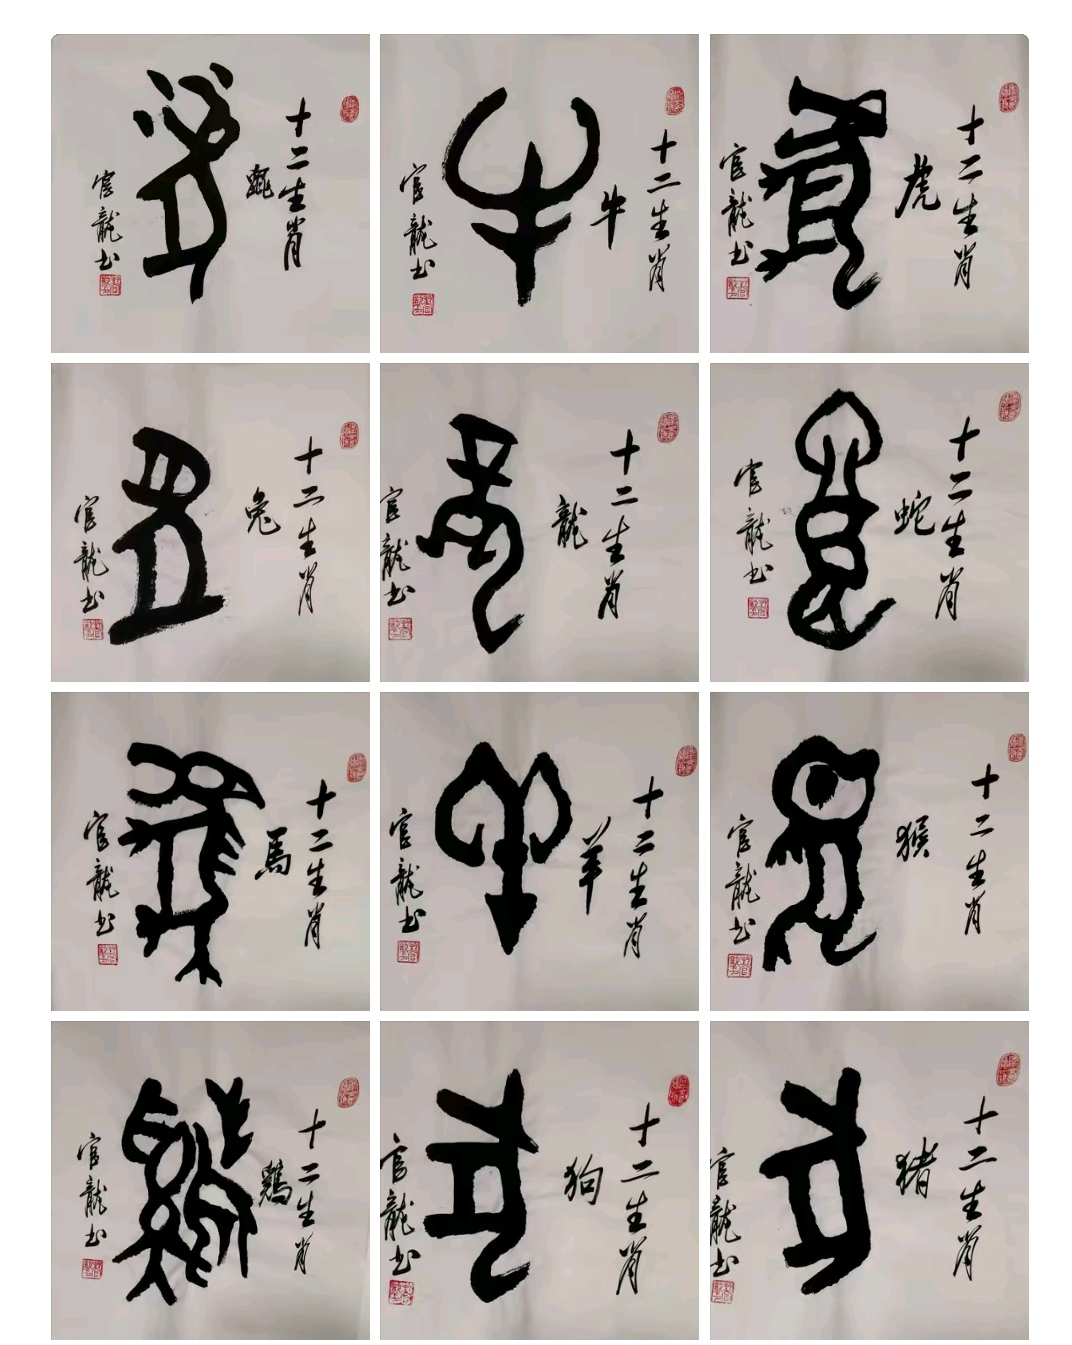 十二生肖
鼠
官龍书
十二生肖
牛
官龍书
十二生肖
虎
官龍书
十二生肖
兔
官龍书
十二生肖
龍
官龍书
十二生肖
蛇
官龍书
十二生肖
馬
官龍书
十二生肖
羊
官龍书
十二生肖
猴
官龍书
十二生肖
鷄
官龍书
十二生肖
狗
官龍书
十二生肖
猪
官龍书